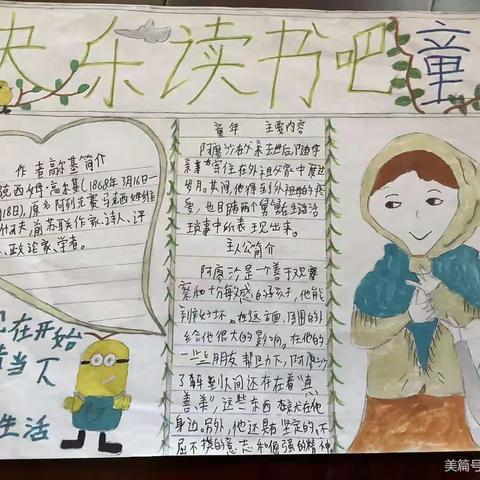 快乐读书吧 童
作者高尔基简介
克西姆·高尔基(1868年3月16日—
18日),原名阿列克赛·马克西姆维
什可夫,前苏联作家、诗人、评
、政论家、学者。
在开始
当下
生活
童年 主要内容
阿廖沙在父亲去世后,随母
亲寄住在外祖父家中度过
岁月。其间,他得到外祖母的疼
爱,也目睹两个舅舅在生活
琐事中所表现出来。
主人公简介
阿廖沙是一个善于观察
和十分敏感的孩子,他能
到好坏。在这方面,周围的
给他很大的影响,在他的
一些朋友帮助下,阿廖沙
了解到人间还存在着“真
善美”,这些东西
身边。另外,他还具有坚定的、不
屈不挠的意志和倔强的精神。
美篇号